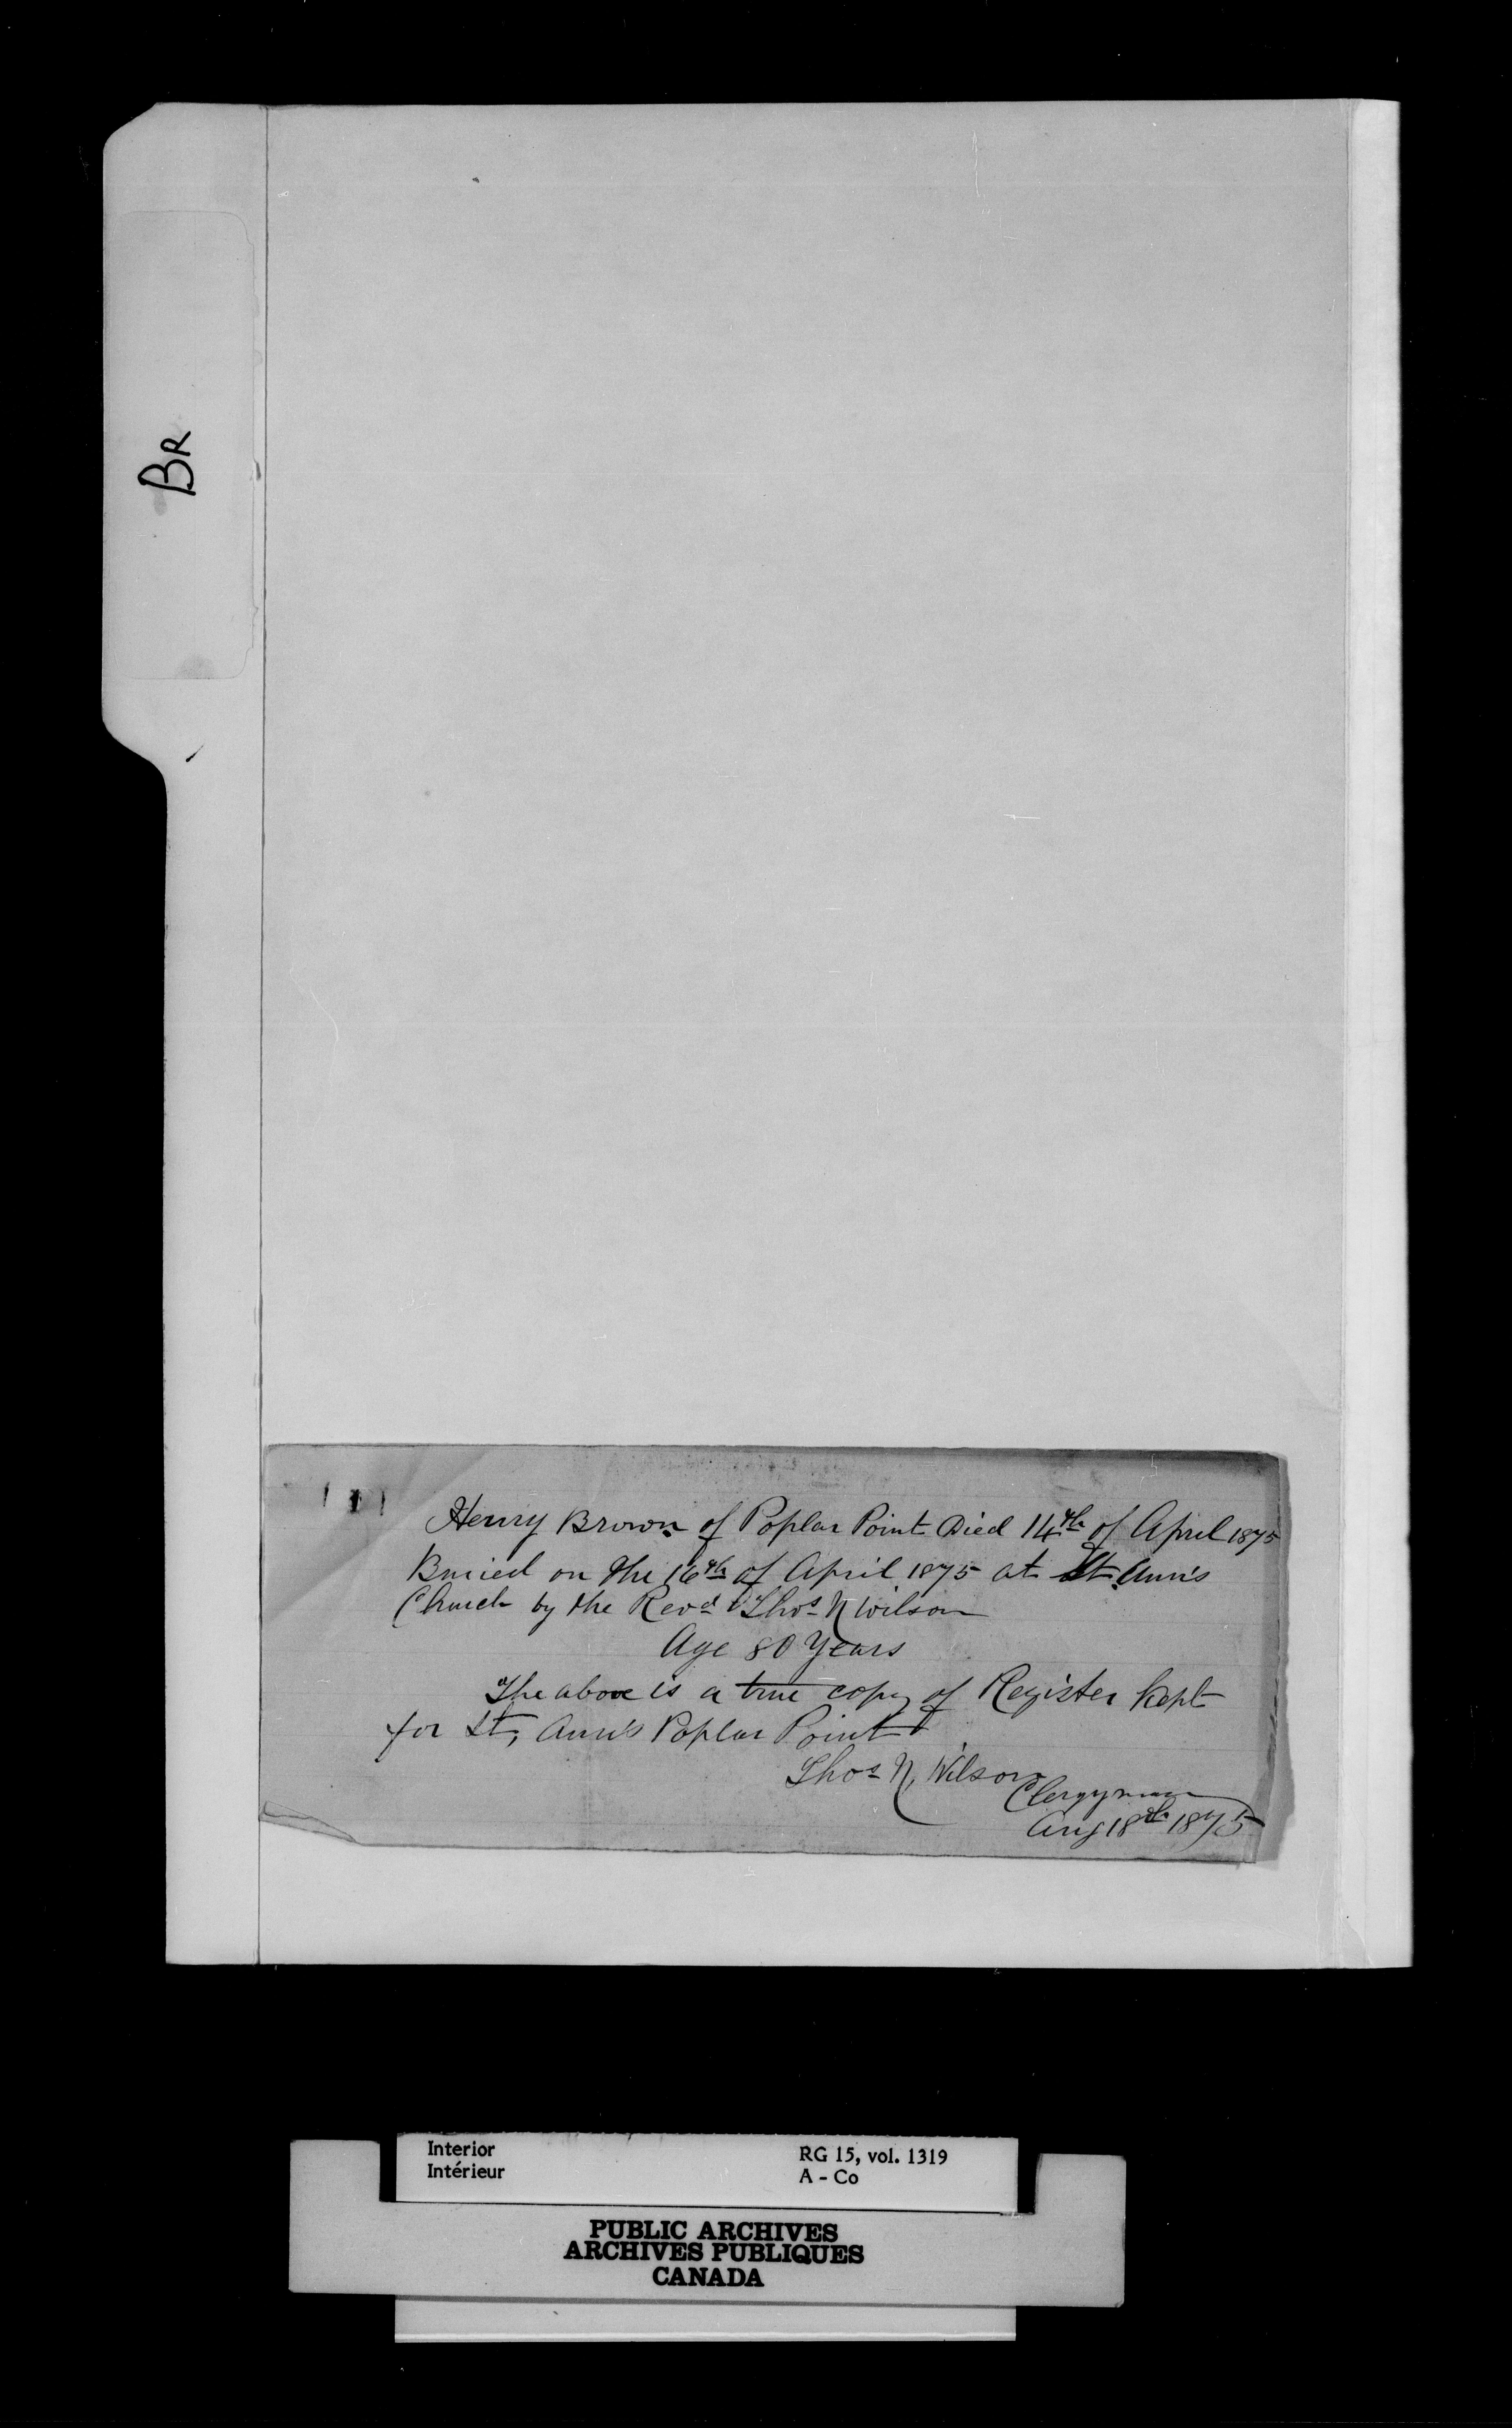 BR
Henry Brown of Poplar Point Died 14th of April 1875
Buried on the 16th of April 1875 at St Ann's
Church by the Revd Thos N Wilson
Age 80 Years
The above is a true copy of Register Kept
for St, Ann's Poplar Point
Thos N, Wilson
Clergyman
Aug 18th 1875
Interior
Intérieur
RG 15, vol. 1319
A - Co
PUBLIC ARCHIVES
ARCHIVES PUBLIQUES
CANADA